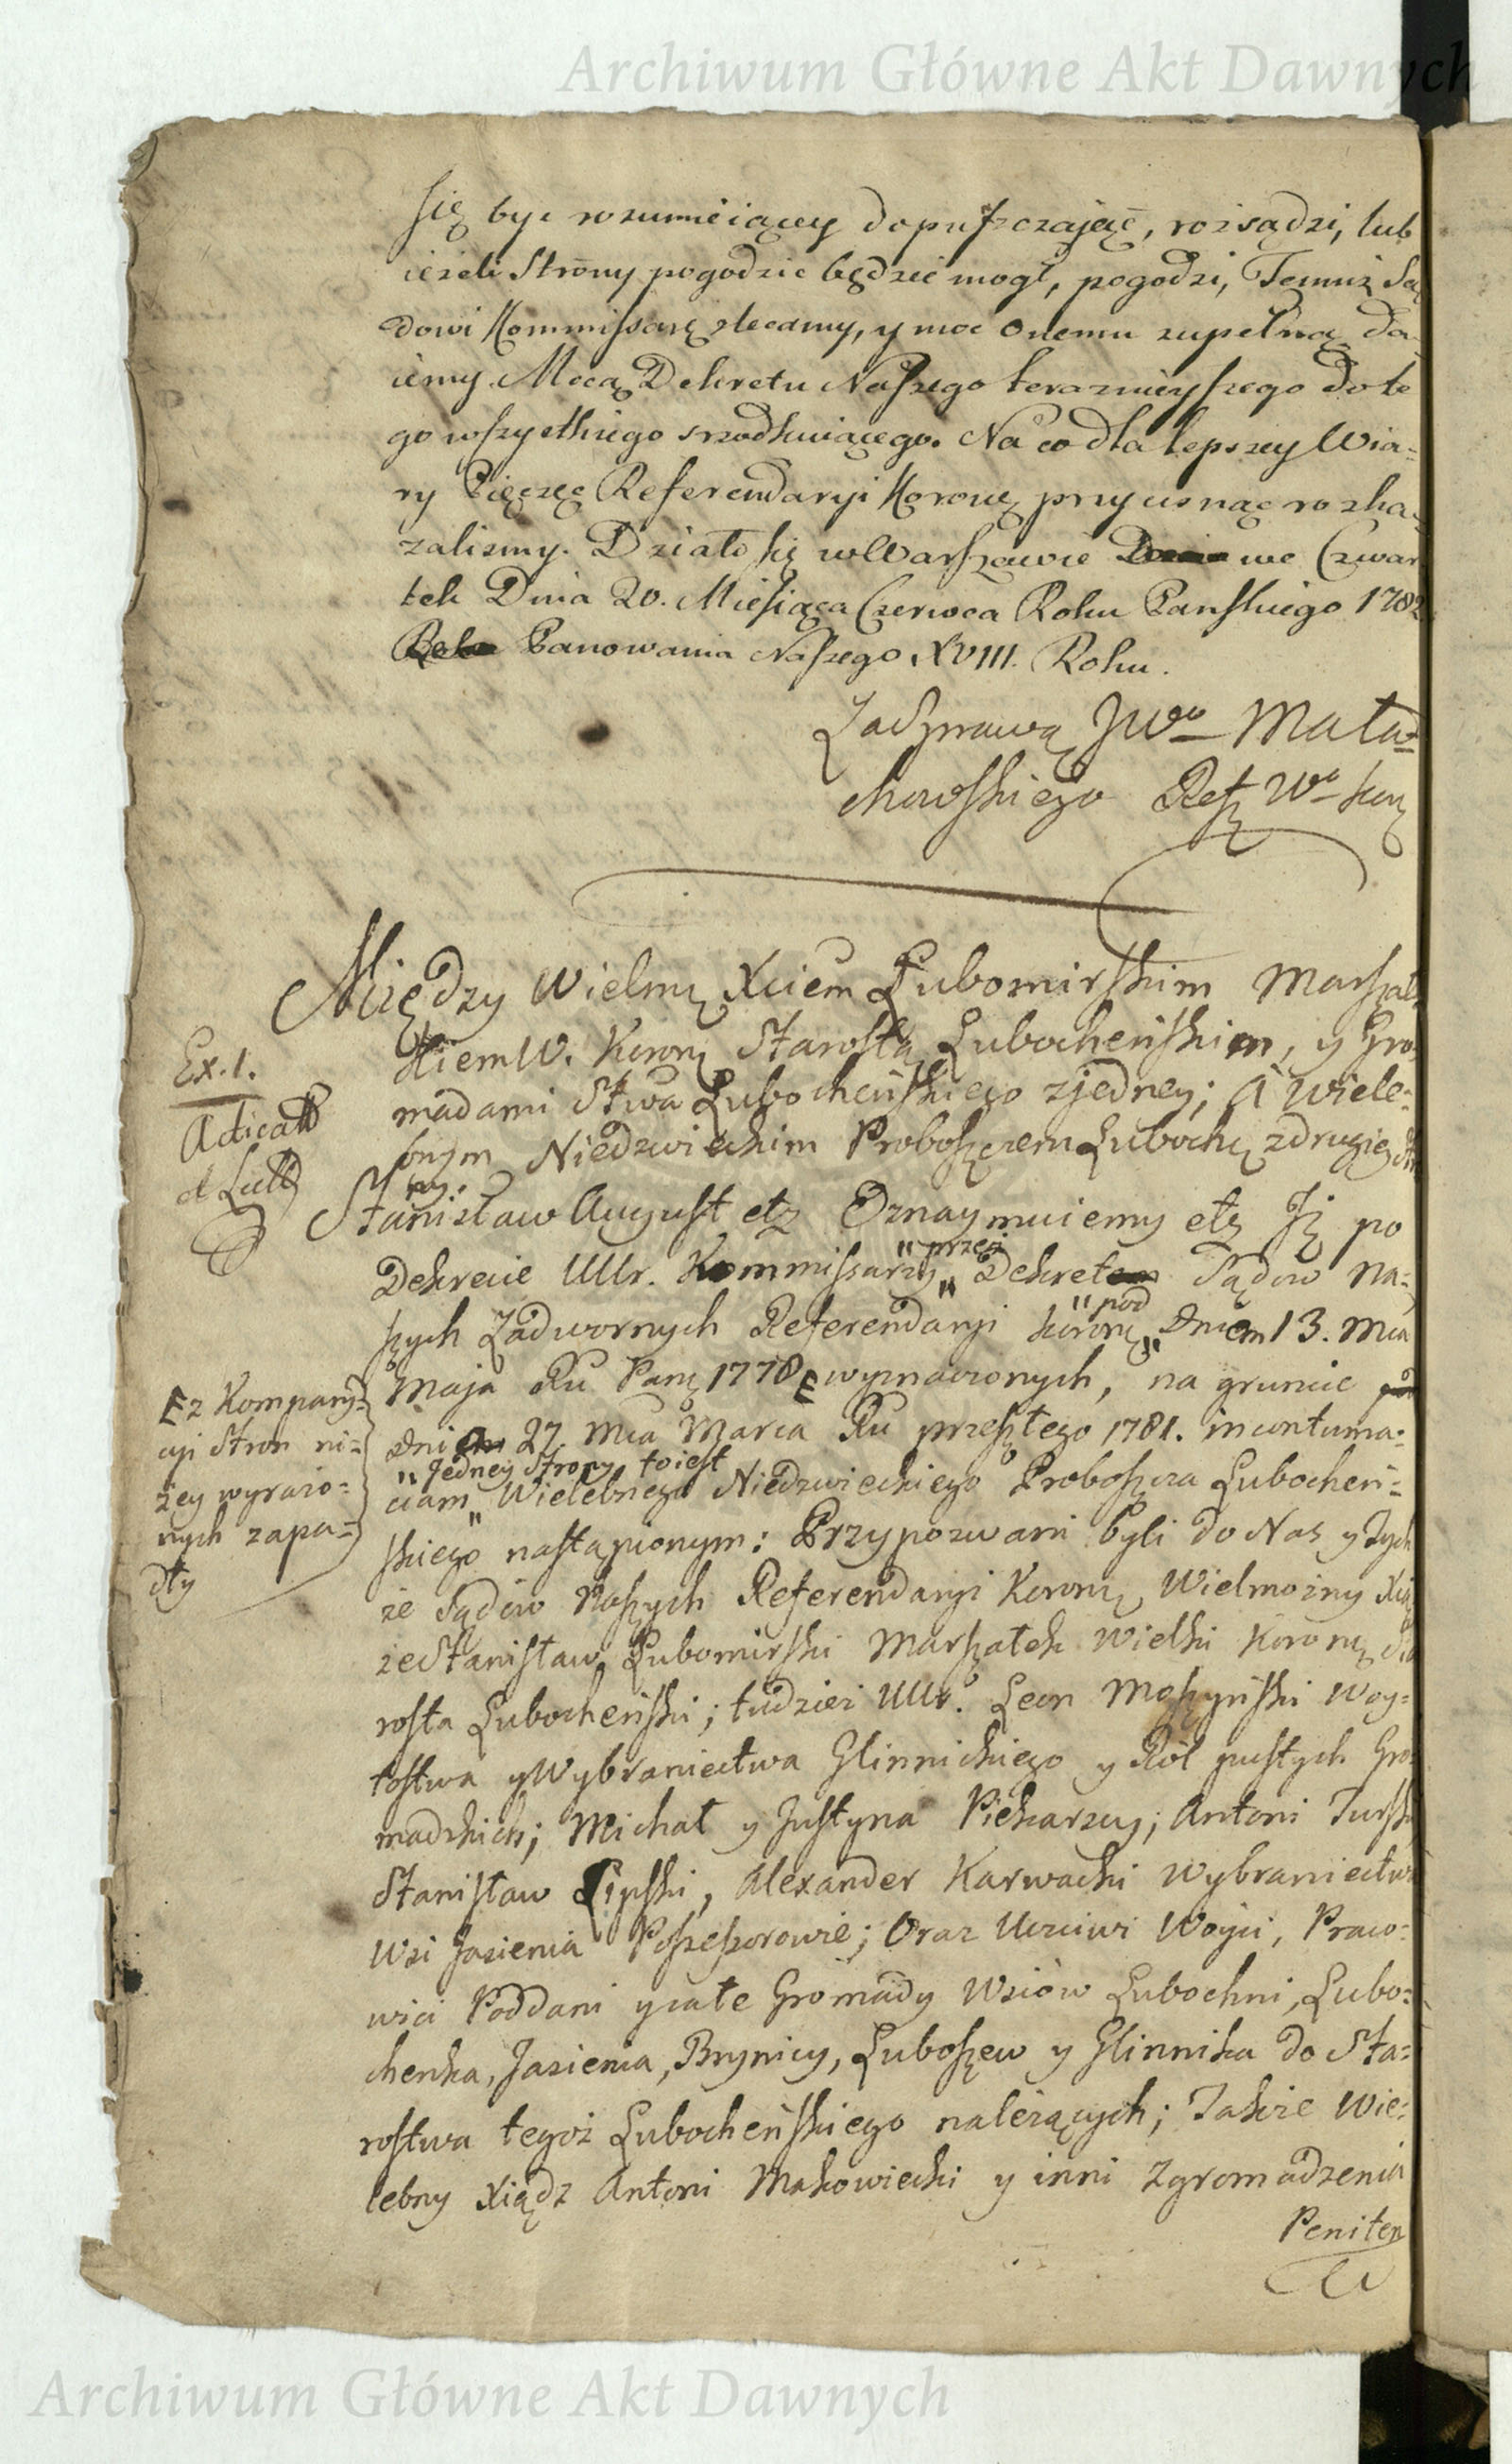 Archiwum Główne Akt Dawnych
się byc rozumieiącey dopuszczaiąc, rozsądzi, lub
ieżeli Strony pogodzic będzie mogł, pogodzi, Temuż Są
dowi Kommissarę zlecamy, y moc onemu zupełną da-
iemy. Mocą Dekretu Naszego teraznieyszego do te
go wszystkiego srzodkuiącego. Na co dla lepszey Wia-
ry Pieczęc Referendaryi Koronę przycisnąc rozka-
zalismy. Działo się w Warszawie we Czwar
tek Dnia 20. Miesiąca Czerwca Roku Panskiego 1782
Panowania Naszego XVIII. Roku.
Za Sprawą JWo Mała-
chowskiego Refę Wo Korę
Między Wielmę Xciem Lubomirskim Marszał
kiem W. Koronę Starostą Lubochenskim, y Gro-
madami Stwa Lubochenskiego z jedney; A Wiele-
bnym Niedzwieckim Proboszczem Lubochę z drugiey Stro
ny.
Ex. 1.
Stanisław August etz Oznaymuiemy etz Iż po
"przez
Dekrecie Ullr. Kommissarzy" Dekret Sądow Na-
"pod
szych Zadwornych Referendaryi Koronę" Dniem 13. Mca
Maja Ru Panę 1778 wyznaczonych, na gruncie
Dni 27 Mca Marca Ru przeszłego 1781. in contuma-
"Jedney Strony, toiest
ciam" Wielebnego Niedzwieckiego Proboszcza Lubochen-
Ez Kompary-
cyi Stron ni-
żey wyrażo-
nych zapa-
dły
skiego nastąpionym: Przypozwani byli do Nas y Tych
że Sądow Naszych Referendaryi Koronę Wielmożny Xią
że Stanisław Lubomirski Marszałek Wielki Koronę Sta
rosta Lubochenski; tudzież Ullr. Leon Moszynski Woy-
tostwa y Wybraniectwa Glinnickiego y Ról pustych Gro-
madzkich; Michał y Justyna Piekarscy; Antoni Turski
Stanisław Lipski, Alexander Karwacki Wybraniectwa
Wsi Jasienia Possessorowie; Oraz Uczciwi Woyci, Praco-
wici Poddani y całe Gromady Wsiów Lubochni, Lubo-
chenka, Jasienia, Brynicy, Luboszew y Glinnika do Sta-
rostwa tegoż Lubochenskiego należących; Także Wie-
lebny Xiądz Antoni Makowiecki y inni Zgromadzenia
Peniten
Archiwum Główne Akt Dawnych